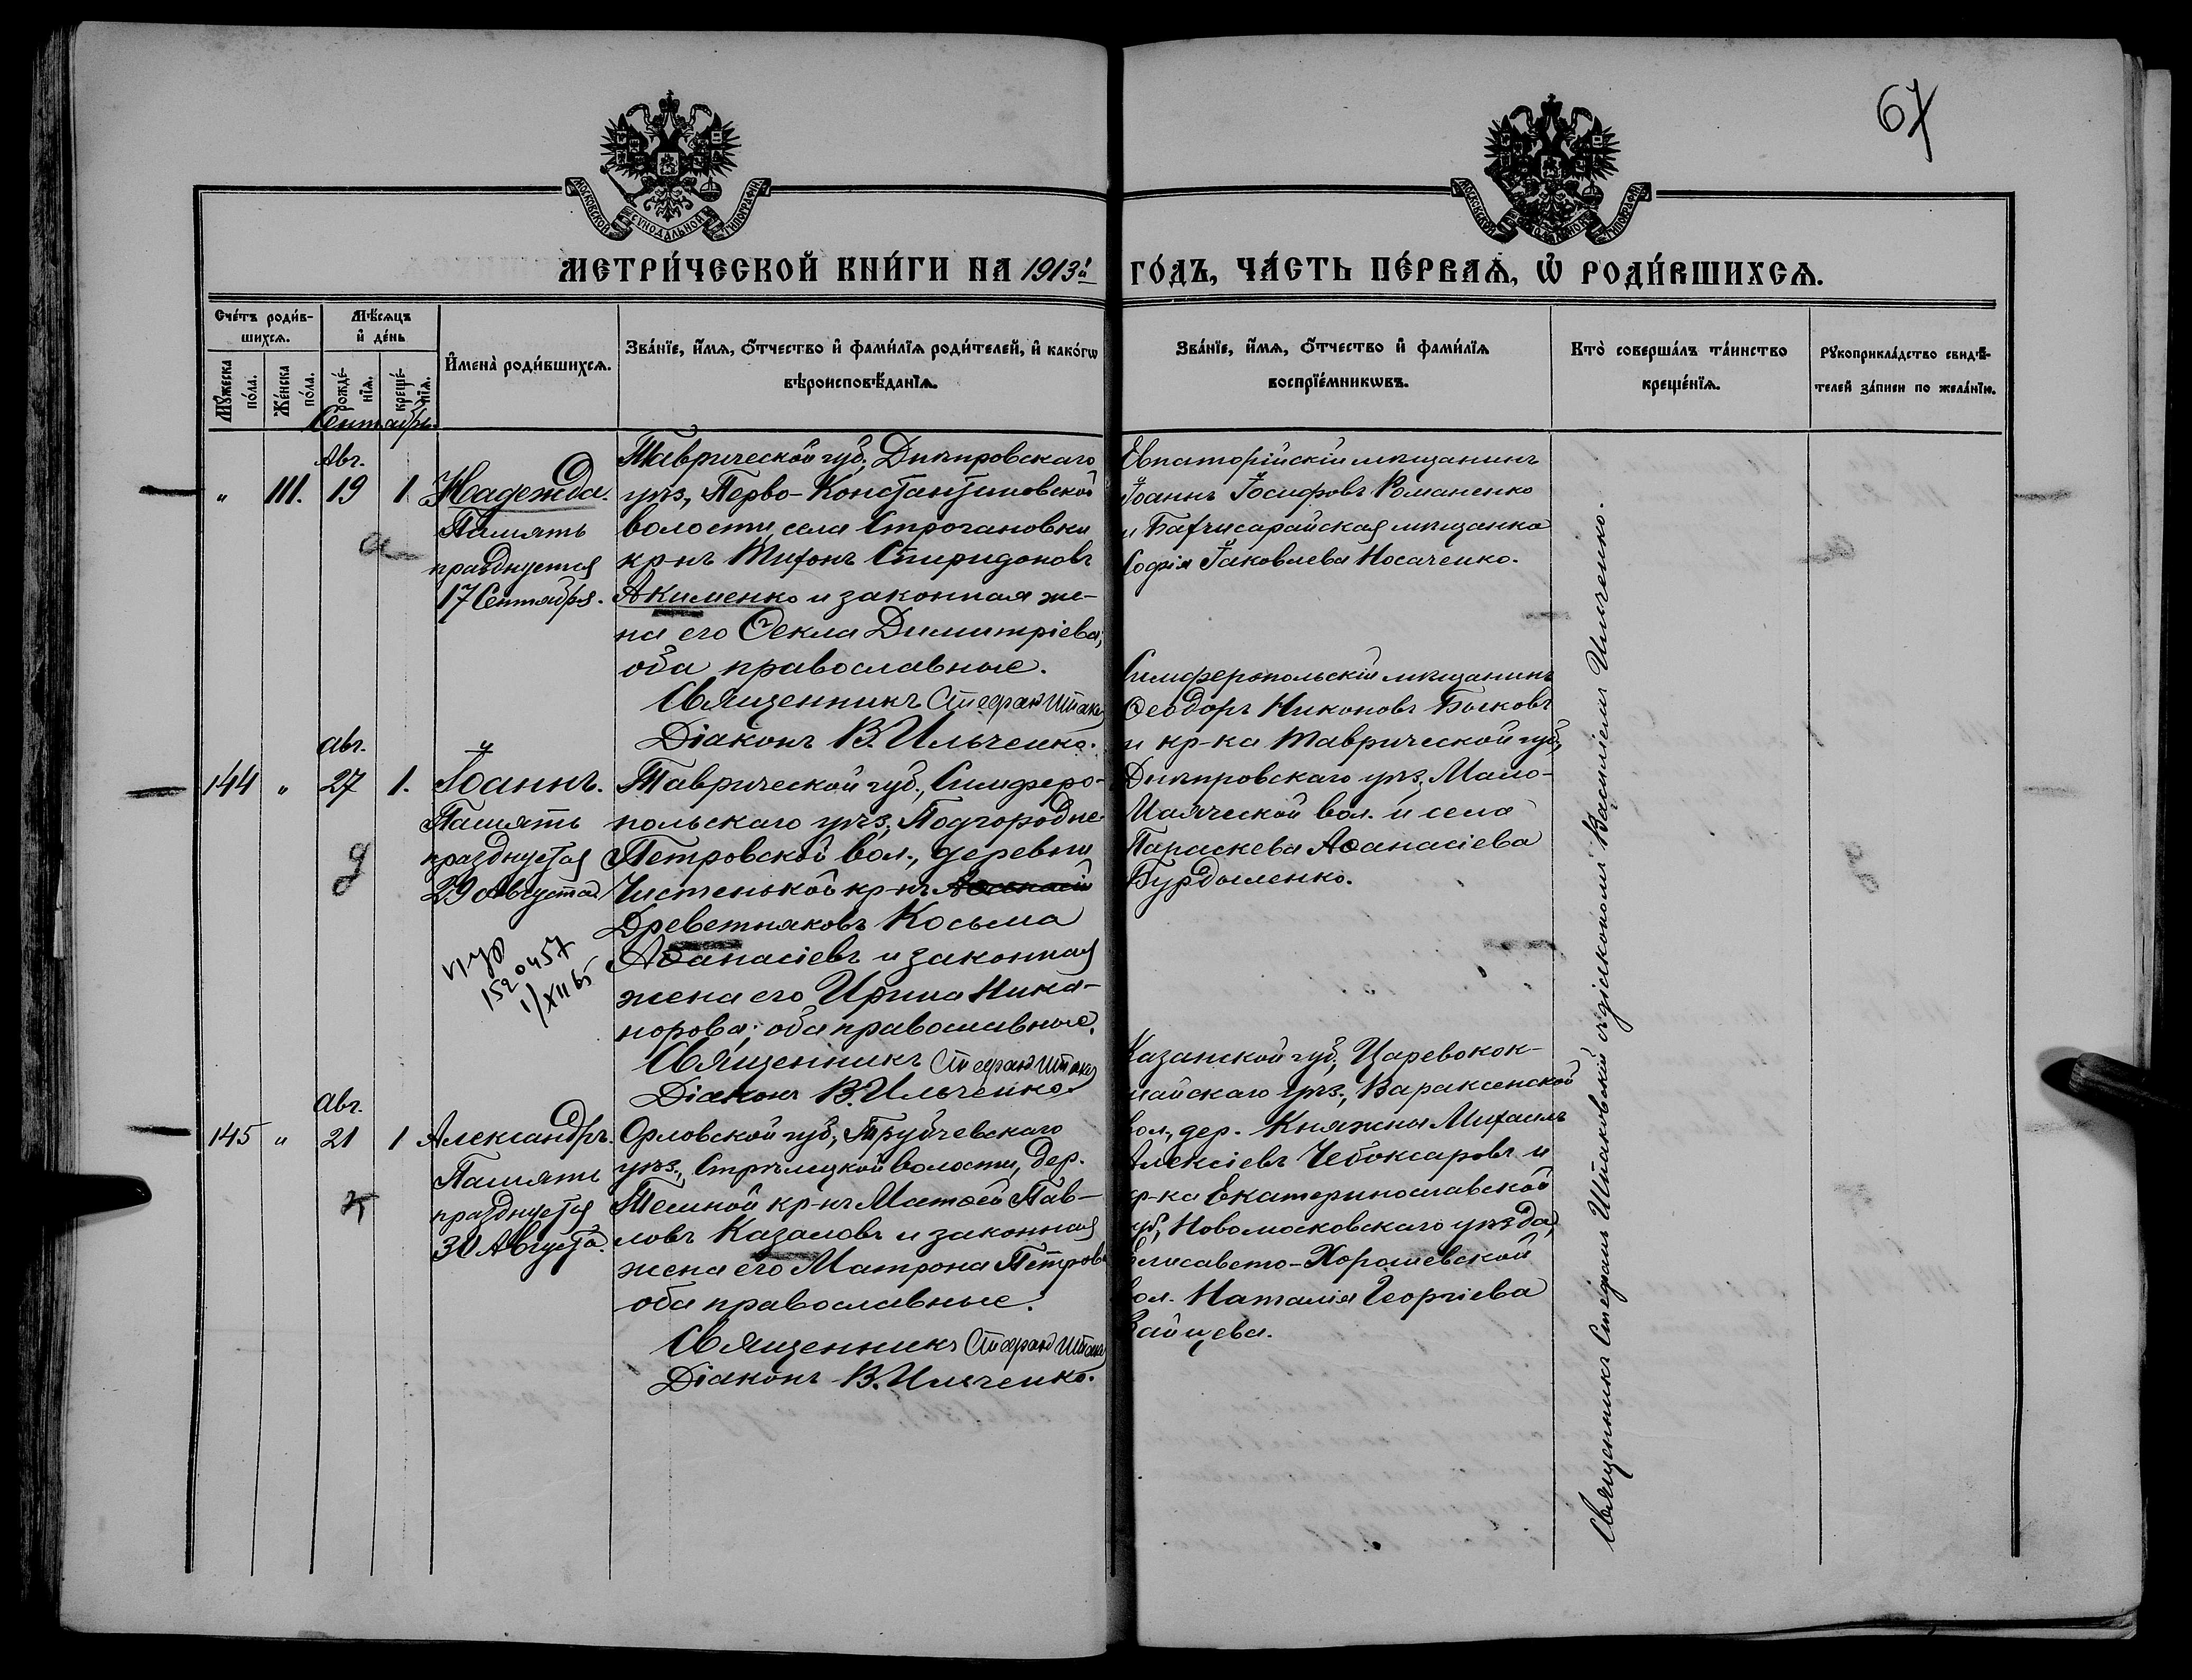 67
МОСКОВСКОЙ СУНОДАЛЬНОЙ ТИПОГРАФІИ
МОСКОВСКОЙ СУНОДАЛЬНОЙ ТИПОГРАФІИ
МЕТРИ́ЧЕСКОЙ КНИ́ГИ НА 1913й
ГО́ДЪ, ЧА́СТЬ ПЕ́РВАѦ, Ѡ҆ РОДИ́ВШИХСѦ.
Сче́тъ роди́в-
шихсѧ.
Мѣ́сѧцъ
и҆ де́нь
Мꙋ́жеска по́ла.
Же́нска по́ла.
рожде́-нїѧ.
креще́-нїѧ.
И҆мена̀ роди́вшихсѧ.
Зва́нїе, и҆́мѧ, ѻ҆́тчество и҆ фами́лїѧ роди́телей, и҆ како́гѡ
вѣроисповѣ́данїѧ.
Зва́нїе, и҆́мѧ, ѻ҆́тчество и҆ фами́лїѧ
воспрїе́мникѡвъ.
Кто̀ соверша́лъ та́инство
креще́нїѧ.
Рꙋкоприкла́дство свидѣ́-
телей за́писи по жела́нїю.
Сентябрь.
Авг.
" 111. 19 1 Надежда.
Память
празднуется
17 Сентября.
Таврической губ., Днѣпровскаго
уѣз., Перво-Константиновской
волости, села Строгановки
кр-нъ Тихонъ Спиридоновъ
Акименко и законная же-
на его Ѳекла Димитріева;
оба православные.
Священникъ Стефанъ
Діаконъ В. Ильченко.
Евпаторійскій мѣщанинъ
Іоаннъ Іосифовъ Романенко
и Бахчисарайская мѣщанка
Софія Іаковлева Носаченко.
Авг.
144 " 27 1. Іоаннъ.
Память
празднуется
29 Августа
152 0457
1/XII 65
Таврической губ., Симферо-
польскаго уѣз., Подгородне-
Петровской вол., деревни
Чистенькой кр-нъ
Древетняковъ Косьма
Аѳанасіевъ и законная
жена его Ирина Ника-
норова; оба православные.
Священникъ Стефанъ
Діаконъ В. Ильченко
Симферопольскій мѣщанинъ
Ѳеодоръ Никоновъ Быковъ
и кр-ка Таврической губ.,
Днѣпровскаго уѣз., Мало-
Маяческой вол. и села
Параскева Аѳанасіева
Бурдыленко.
Авг.
145 " 21 1 Александръ.
Память
празднуется
30 Августа.
Орловской губ., Трубчевскаго
уѣз., Стрѣлецкой волости, дер.
Темной кр-нъ Матѳей Пав-
ловъ Казаковъ и законная
жена его Матрона Петрова
оба православные.
Священникъ Стефанъ
Діаконъ В. Ильченко.
Казанской губ., Царевокок-
шайскаго уѣз., Вараксинской
вол., дер. Княжны Михаилъ
Алексіевъ Чебоксаровъ и
кр-ка Екатеринославской
губ., Новомосковскаго уѣзда,
Елисавето-Хорошевской
вол. Наталія Георгіева
Зайцева.
Священникъ Стефанъ Штаковскій съ діакономъ Василіемъ Ильченко.